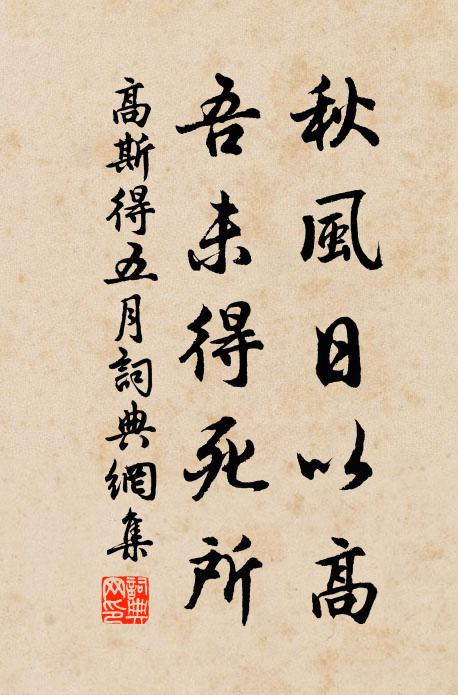 秋風日以高
吾未得死所
高斯得五月詞典網集
詞典網印